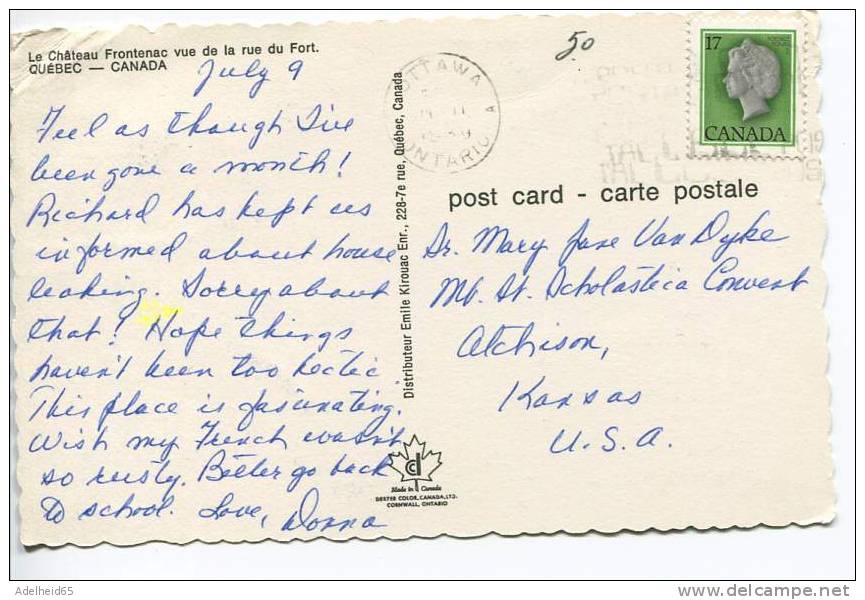 Le Château Frontenac vue de la rue du Fort.
QUÉBEC — CANADA
July 9
Feel as though I've
been gone a month!
Richard has kept us
informed about house
leaking. Sorry about
that! Hope things
haven't been too hectic.
This place is fascinating.
Wish my French wasn't
so rusty. Better go back
to school. Love, Donna
Distributeur Emile Kirouac Enr., 228-7e rue, Québec, Canada
Made in Canada
DEXTER COLOR, CANADA, LTD.
CORNWALL, ONTARIO
50
OTTAWA
ONTARIO
17
CANADA
post card - carte postale
Sr. Mary Jane Van Dyke
Mt. St. Scholastica Convent
Atchison,
Kansas
U.S.A.
Adelheid65
delcampe.net